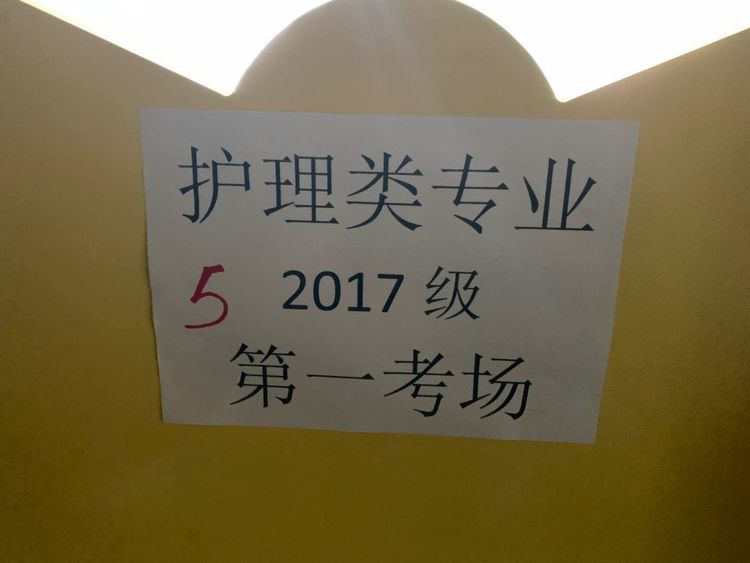 护理类专业
5 2017级
第一考场